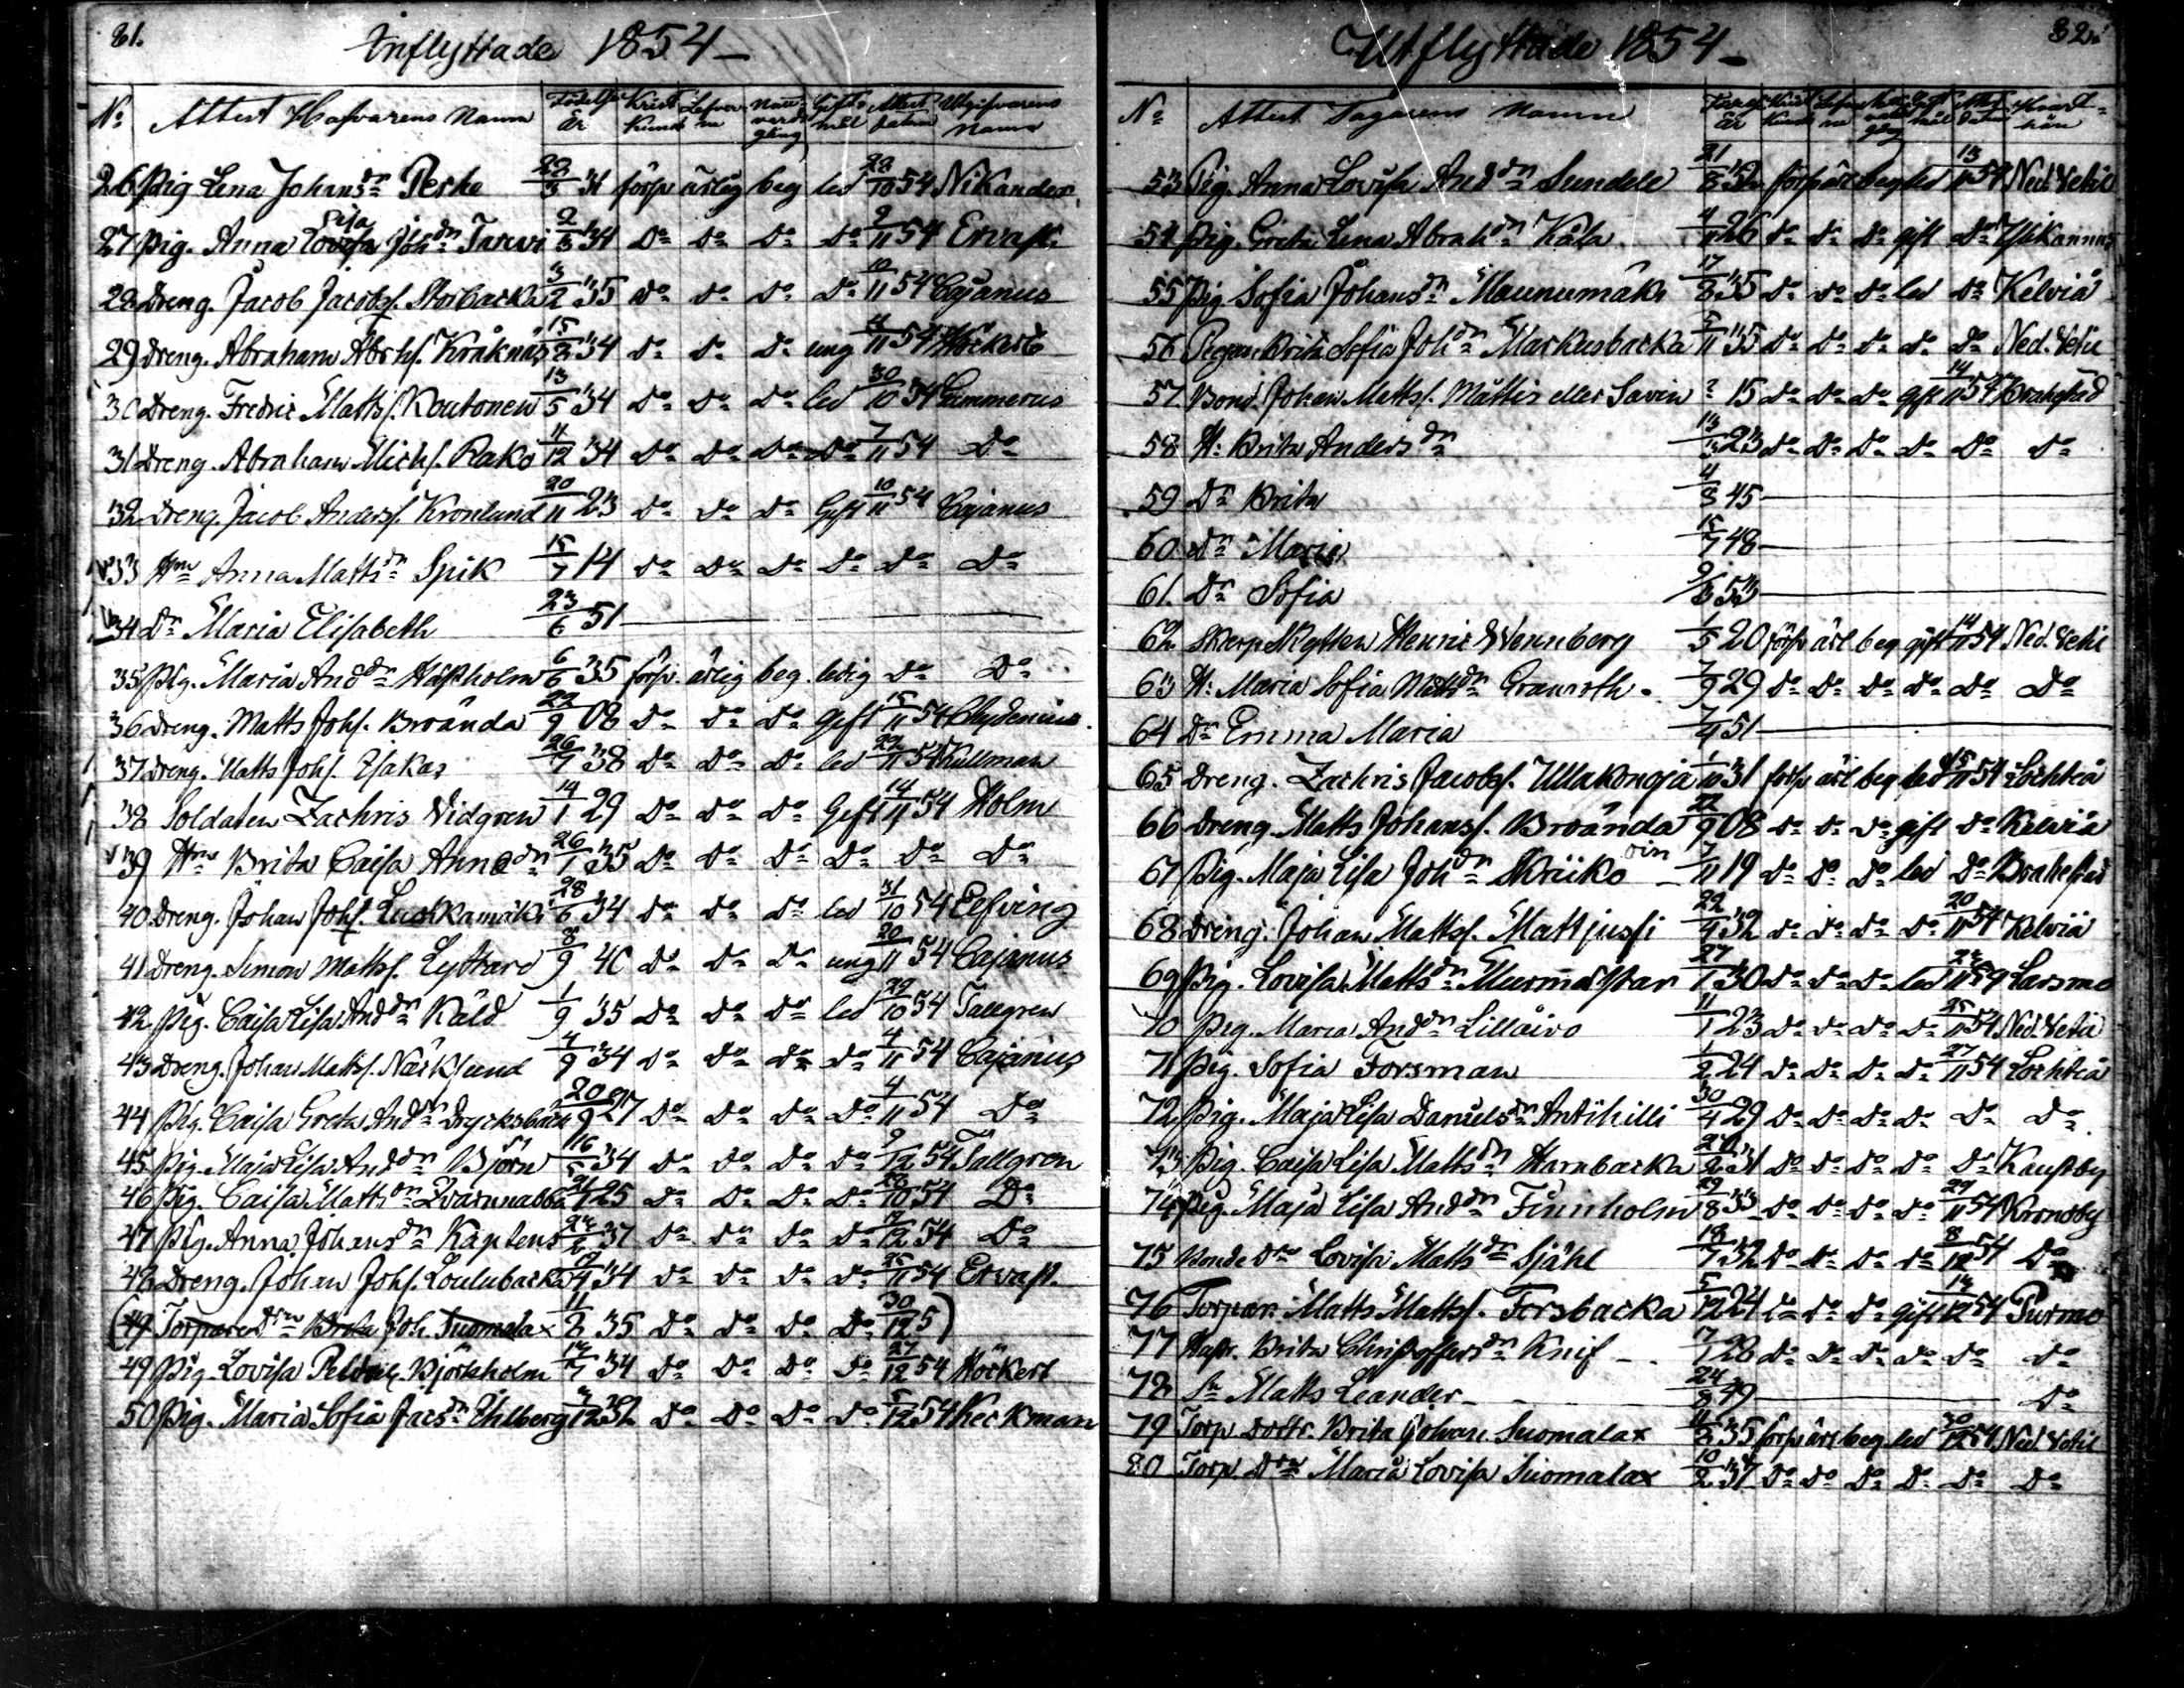 81.
Inflyttade 1854 –
No Attest Hafvarens Namn Födelse År Krist. Kunsk Lefver ne Natt vards gång Gift mål Attest datum Utgifvarens Namn
26 Pig Lena Johansdn Peske 22/3 31 försv ärlig beg led 29/10 54 Nikander
27 Pig. Anna Lisa Johdn Tarvi 2/3 34 Do Do Do Do 9/11 54 Ervast.
28 Dreng. Jacob Jacobss. Storbacka 13/2 35 Do Do Do Do 10/11 54 Cajanus
29 Dreng. Abraham Abrhs. Kråknäs 15/2 34 Do Do Do ung 4/11 54 Höckert
30 Dreng. Fredric Matts. Koutonen 13/5 34 Do Do Do led 30/10 54 Simmerus
31 Dreng. Abraham Michs. Rako 11/12 34 Do Do Do Do 7/11 54 Do
32 Dreng. Jacob Anderss. Kronlund 20/11 23 Do Do Do Gift 10/11 54 Cajanus
33 Hon Anna Mattsdn Spik 15/7 14 Do Do Do Do Do Do
34 Dr Maria Elisabeth 23/6 51
35 Pig. Maria Anddn Hästholm 6/6 35 försv. ärlig beg. ledig Do Do
36 Dreng. Matts Johs. Broända 22/9 08 Do Do Do Gift 15/11 54 Chydenius.
37 Dreng. Matts Johs. Esakas 26/7 38 Do Do Do led 22/11 54 Kullman
38 Soldaten Zachris Vidgren 14/1 29 Do Do Do Gift 14/11 54 Holm
39 Hns Brita Caisa Annddn 26/1 35 Do Do Do Do Do Do
40 Dreng. Johan Johs. Luokkamäki 28/6 34 Do Do Do led 31/10 54 Elfving
41 Dreng. Simon Matts. Lyttard 8/9 40 Do Do Do ung 20/11 54 Cajanus
42 Pig. Caisa Lisa Anddn Käld 1/9 35 Do Do Do led 29/10 54 Tallgren
43 Dreng. Johan Matts. Näcklund 4/9 34 Do Do Do Do 4/11 54 Cajanus
44 Pig. Caisa Greta Anddn Drycksbäck 20/9 27 Do Do Do Do 4/11 54 Do
45 Pig. Maja Lisa Anddn Björn 16/5 34 Do Do Do Do 9/12 54 Tallgren
46 Pig. Caisa Mattsdn Qvarnnabba 21/7 25 Do Do Do Do 28/10 54 Do
47 Pig. Anna Johansdn Kaptens 24/6 37 Do Do Do Do 9/12 54 Do
48 Dreng. Johan Johs. Loulubacka 9/4 34 Do Do Do Do 25/11 54 Ervast.
(49 Torpare Drn Brita Joh. Suomalax 11/8 35 Do Do Do Do 30/12 5)
49 Pig. Lovisa Björkholm 14/7 34 Do Do Do Do 27/12 54 Höckert
50 Pig. Maria Sofia Jacsdn Ehlberg 32 Do Do Do Do 5/12 54 Keckman
82.
Utflyttade 1854 –
No Attest Tagarens Namn Födelse År Krist Kunsk Lefver ne Natt vards gång Gift mål Att Datum Hvart hän
53 Pig. Anna Lovisa Anddn Sundell 21/8 32 försv ärl beg led 13/11 54 Ned. Vetil
54 Pig. Greta Lena Abrahdn Kåla 4/11 26 Do Do Do gift Do Yliskannus
55 Pig Sofia Johansdn Maunumäki 17/8 35 Do Do Do led Do Kelviå
56 Pigan Brita Sofia Johdn Markusbacka 5/11 35 Do Do Do Do Do Ned. Vetil
57 Bond. Johan Mattss. Mattis eller Savin ? 15 Do Do Do gift 14/11 54 Brahestad
58 H: Brita Andersdn 13/3 23 Do Do Do Do Do Do
59 Dr Brita 4/3 45
60 Dr Maria 15/7 48
61. Dr Sofia 9/8 53
62 Skarp Skytten Henric Wennberg 1/5 20 försv ärl beg gift 14/11 54 Ned. Vetil
63 H: Maria Sofia Mattsdn Granroth. 7/9 29 Do Do Do Do Do Do
64 Dr Emma Maria 7/4 51
65 Dreng. Zachris Jacobss. Ullakonoja 1/10 31 försv ärl beg led 15/11 54 Lochteå
66 Dreng. Matts Johanss. Broända 22/9 08 Do Do Do gift Do Kelviå
67 Pig. Maja Lisa Johdn Skriiko oin 7/11 19 Do Do Do led Do Brahestad
68 Dreng. Johan Mattss. Mattjussi 22/4 32 Do Do Do Do 20/11 54 Kelviå
69 Pig. Lovisa Mattsdn Murmästar 27/1 30 Do Do Do led 54 Larsmo
70 Pig. Maria Anddn Lillåivo 11/1 23 Do Do Do Do 25/11 54 Ned. Vetil
71 Pig. Sofia Forsman 1/2 24 Do Do Do Do 27/11 54 Lochteå
72 Pig. Maja Lisa Danielsdn Antihilli 30/4 29 Do Do Do Do Do Do
73 Pig. Caisa Lisa Mattsdn Harabacka 20/2 31 Do Do Do Do Do Kaustby
74 Pig. Maja Lisa Anddn Finnholm 29/8 33 Do Do Do Do 29/11 54 Kronoby
75 Bonde Drn Lovisa Mattsdn Sjähl 18/7 32 Do Do Do Do 8/12 54 Do
76 Torparn Matts Mattss. Forsbacka 5/12 24 Do Do Do gift 14/12 54 Purmo
77 Hustr. Brita Christoffersdn Knif 17/1 28 Do Do Do Do Do Do
78 Sn Matts Leander 24/8 49 Do
79 Torp Dottr. Brita Johan. Suomalax 11/8 35 försv ärl beg led 30/12 54 Ned Vetil
80 Torp. Drn Maria Lovisa Suomalax 10/2 37 Do Do Do Do Do Do